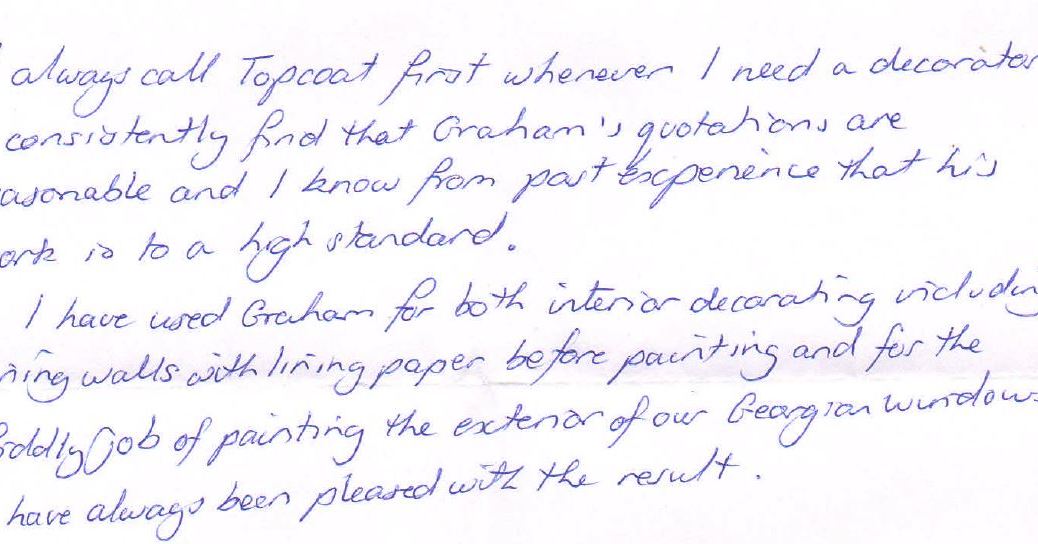 I always call Topcoat first whenever I need a decorator
consistently find that Graham's quotations are
easonable and I know from past experience that his
ork is to a high standard.
I have used Graham for both interior decorating including
ning walls with lining paper before painting and for the
fiddly job of painting the exterior of our Georgian windows
have always been pleased with the result.